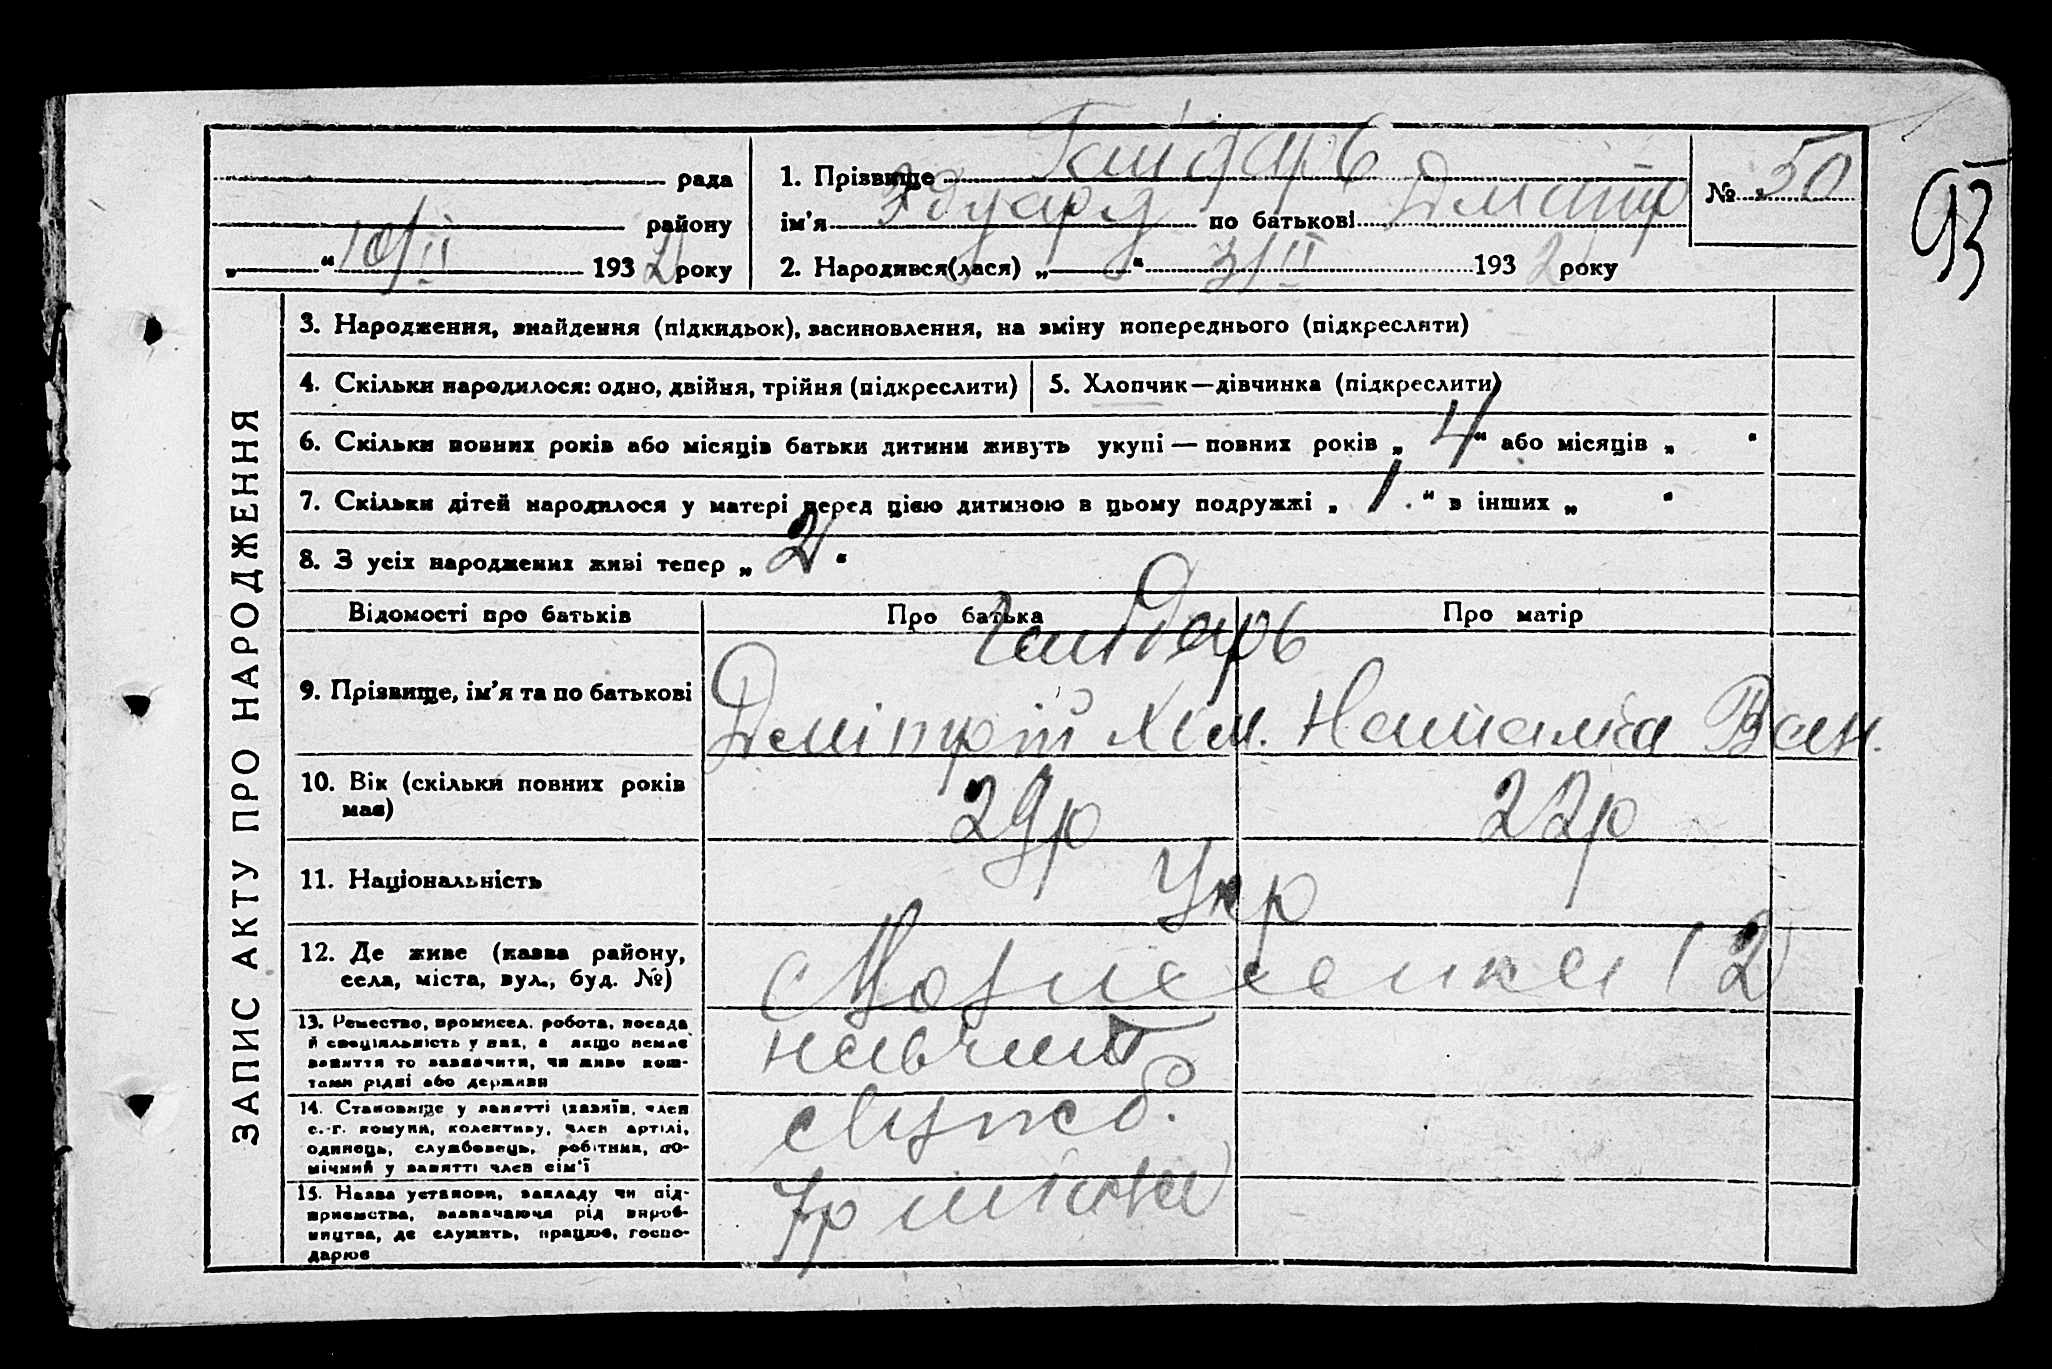 рада
району
„ “ 10/II 1932 року
1. Прізвище Гайдарь
ім'я Эдуард по батькові Дмитр
2. Народився(лася) „ “ 3/II 1932 року
№ 50
93
ЗАПИС АКТУ ПРО НАРОДЖЕННЯ
3. Народження, знайдення (підкидьок), засиновлення, на зміну попереднього (підкреслити)
4. Скільки народилося: одно, двійня, трійня (підкреслити)
5. Хлопчик—дівчинка (підкреслити)
6. Скільки повних років або місяців батьки дитини живуть укупі — повних років „ 4 “ або місяців „ “
7. Скільки дітей народилося у матері перед цією дитиною в цьому подружжі „ 1. “ в інших „ “
8. З усіх народжених живі тепер „ 2 “
Відомості про батьків
Про батька
Про матір
9. Прізвище, ім'я та по батькові
Гайдарь
Дмітрій Хом.
Наталіа Ван.
10. Вік (скільки повних років
має)
29р
22р
11. Національність
Укр
12. Де живе (назва району,
села, міста, вул., буд. №)
12
13. Ремество, промисел, робота, посада
й спеціяльність у них, а якщо немає
заняття то зазначити, чи живе кош-
тами рідні або держави
14. Становище у занятті (хазяїн, член
с.-г. комуни, колективу, член артілі,
одинець, службовець, робітник, по-
мічний у занятті член сім'ї
служб.
15. Назва установи, закладу чи під-
приємства, зазначаючи рід вироб-
ництва, де служить, працює, госпо-
дарює